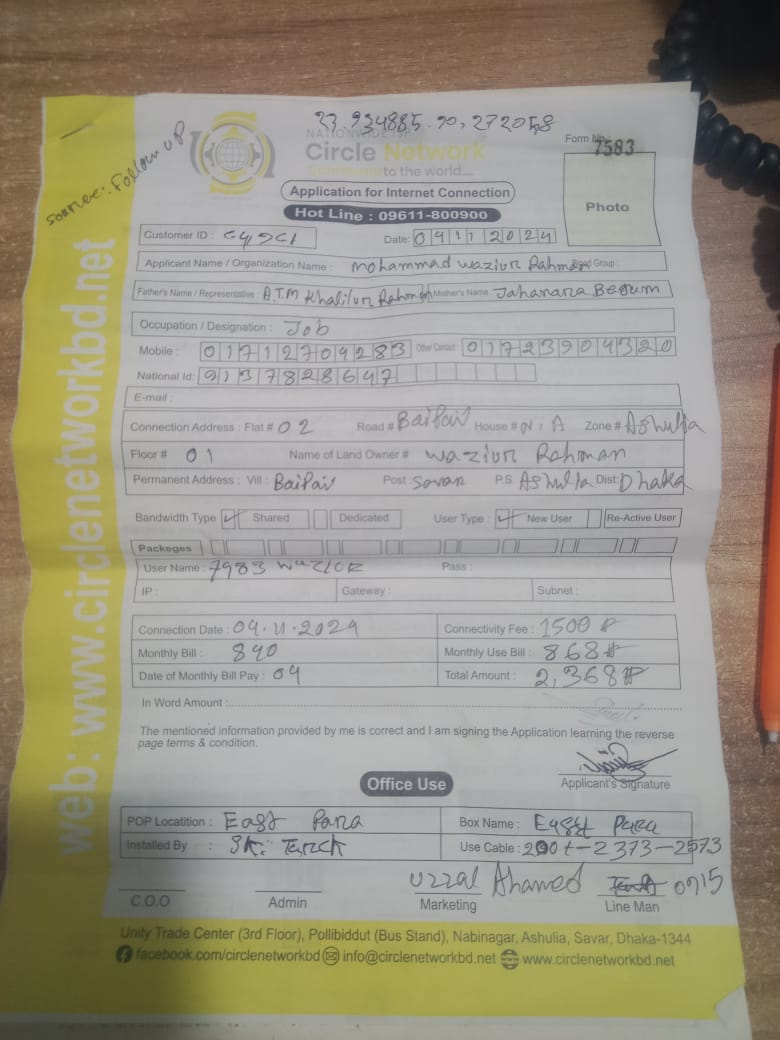 23.934885.90,272058
Source: Follow up
NATIONWIDE ISP
Circle Network
to the world....
Form No:- 7583
Application for Internet Connection
Hot Line : 09611-800900
Photo
Customer ID :
Date: 04112024
Applicant Name / Organization Name : Mohammad Waziur Rahman Blood Group :
Father's Name / Representative : A.T.M Khalilur Rahman Mother's Name : Jahanara Begum
Occupation / Designation : Job
Mobile : 01712704283 Other Contact : 01723904320
National Id: 9137828647
E-mail :
Connection Address : Flat # 02 Road # Baipail House # N.A Zone # Ashulia
Floor # 01 Name of Land Owner # Waziur Rahman
Permanent Address : Vill : Baipail Post : Savar P.S. Ashulia Dist: Dhaka
Bandwidth Type Shared Dedicated User Type : New User Re-Active User
Packeges
User Name : 7983 Pass :
IP : Gateway : Subnet :
Connection Date : 04.11.2024 Connectivity Fee : 1500
Monthly Bill : 840 Monthly Use Bill : 868
Date of Monthly Bill Pay : 04 Total Amount : 2,368
In Word Amount :
The mentioned information provided by me is correct and I am signing the Application learning the reverse
page terms & condition.
Applicant's Signature
Office Use
POP Locatition : East Para Box Name : East Para
Installed By : SK. Use Cable : -2373-2573
Uzzal Ahamed 0915
C.O.O Admin Marketing Line Man
Unity Trade Center (3rd Floor), Pollibiddut (Bus Stand), Nabinagar, Ashulia, Savar, Dhaka-1344
facebook.com/circlenetworkbd info@circlenetworkbd.net www.circlenetworkbd.net
web: www.circlenetworkbd.net